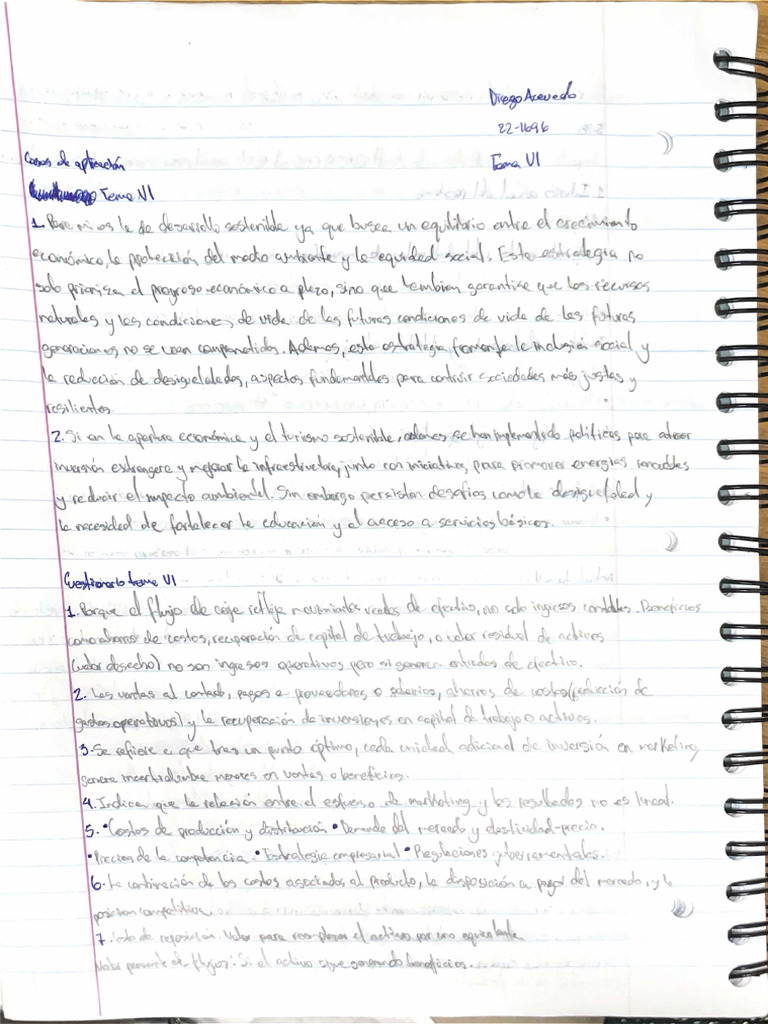 Diego Acevedo
22-1696
Tema VI
Casos de aplicación
Tema VI
1. Para mi es la de desarrollo sostenible ya que busca un equilibrio entre el crecimiento
económico, la protección del medio ambiente y la equidad social. Esta estrategia no
solo prioriza el progreso económico a plazo, sino que tambien garantiza que los recursos
naturales y las condiciones de vida de las futuras condiciones de vida de las futuras
generaciones no se vean comprometidos. Ademas, esta estrategia fomenta la inclusión social y
la reducción de desigualdades, aspectos fundamentales para contruir sociedades más justas y
resilientes.
2. Si en la apertura económica y el turismo sostenible, además se han implementado políticas para atraer
inversión extrangera y mejorar la infraestructura, junto con iniciativas para promover energías renovables
y reducir el impacto ambiental. Sin embargo persisten desafios como la desigualdad y
la necesidad de fortalecer la educación y el acceso a servicios básicos.
Cuestionario tema VI
1. Porque el flujo de caja refleja movimientos reales de efectivo, no solo ingresos contables. Beneficios
como ahorros de costos, recuperación de capital de trabajo, o valor residual de activos
(valor desecho) no son ingresos operativos pero si generan entradas de efectivo.
2. Las ventas al contado, pagos a proveedores o salarios, ahorros de costos (reducción de
gastos operativos) y la recuperación de inversiones en capital de trabajo o activos.
3. Se refiere a que tras un punto óptimo, cada unidad adicional de inversión en marketing
genera incertidumbre menores en ventas o beneficios.
4. Indica que la relación entre el esfuerzo de marketing y los resultados no es lineal.
5. • Costos de producción y distribución • Demanda del mercado y elasticidad-precio.
• Precios de la competencia. • Estrategia empresarial • Regulaciones gubernamentales.
6. La de los costos asociados al producto, la disposición a pagar del mercado, y la
posicion competitiva.
7. Costo de reposición. Valor para reemplazar el activo por uno equivalente
Valor presente de flujos: Si el activo sigue generando beneficios.